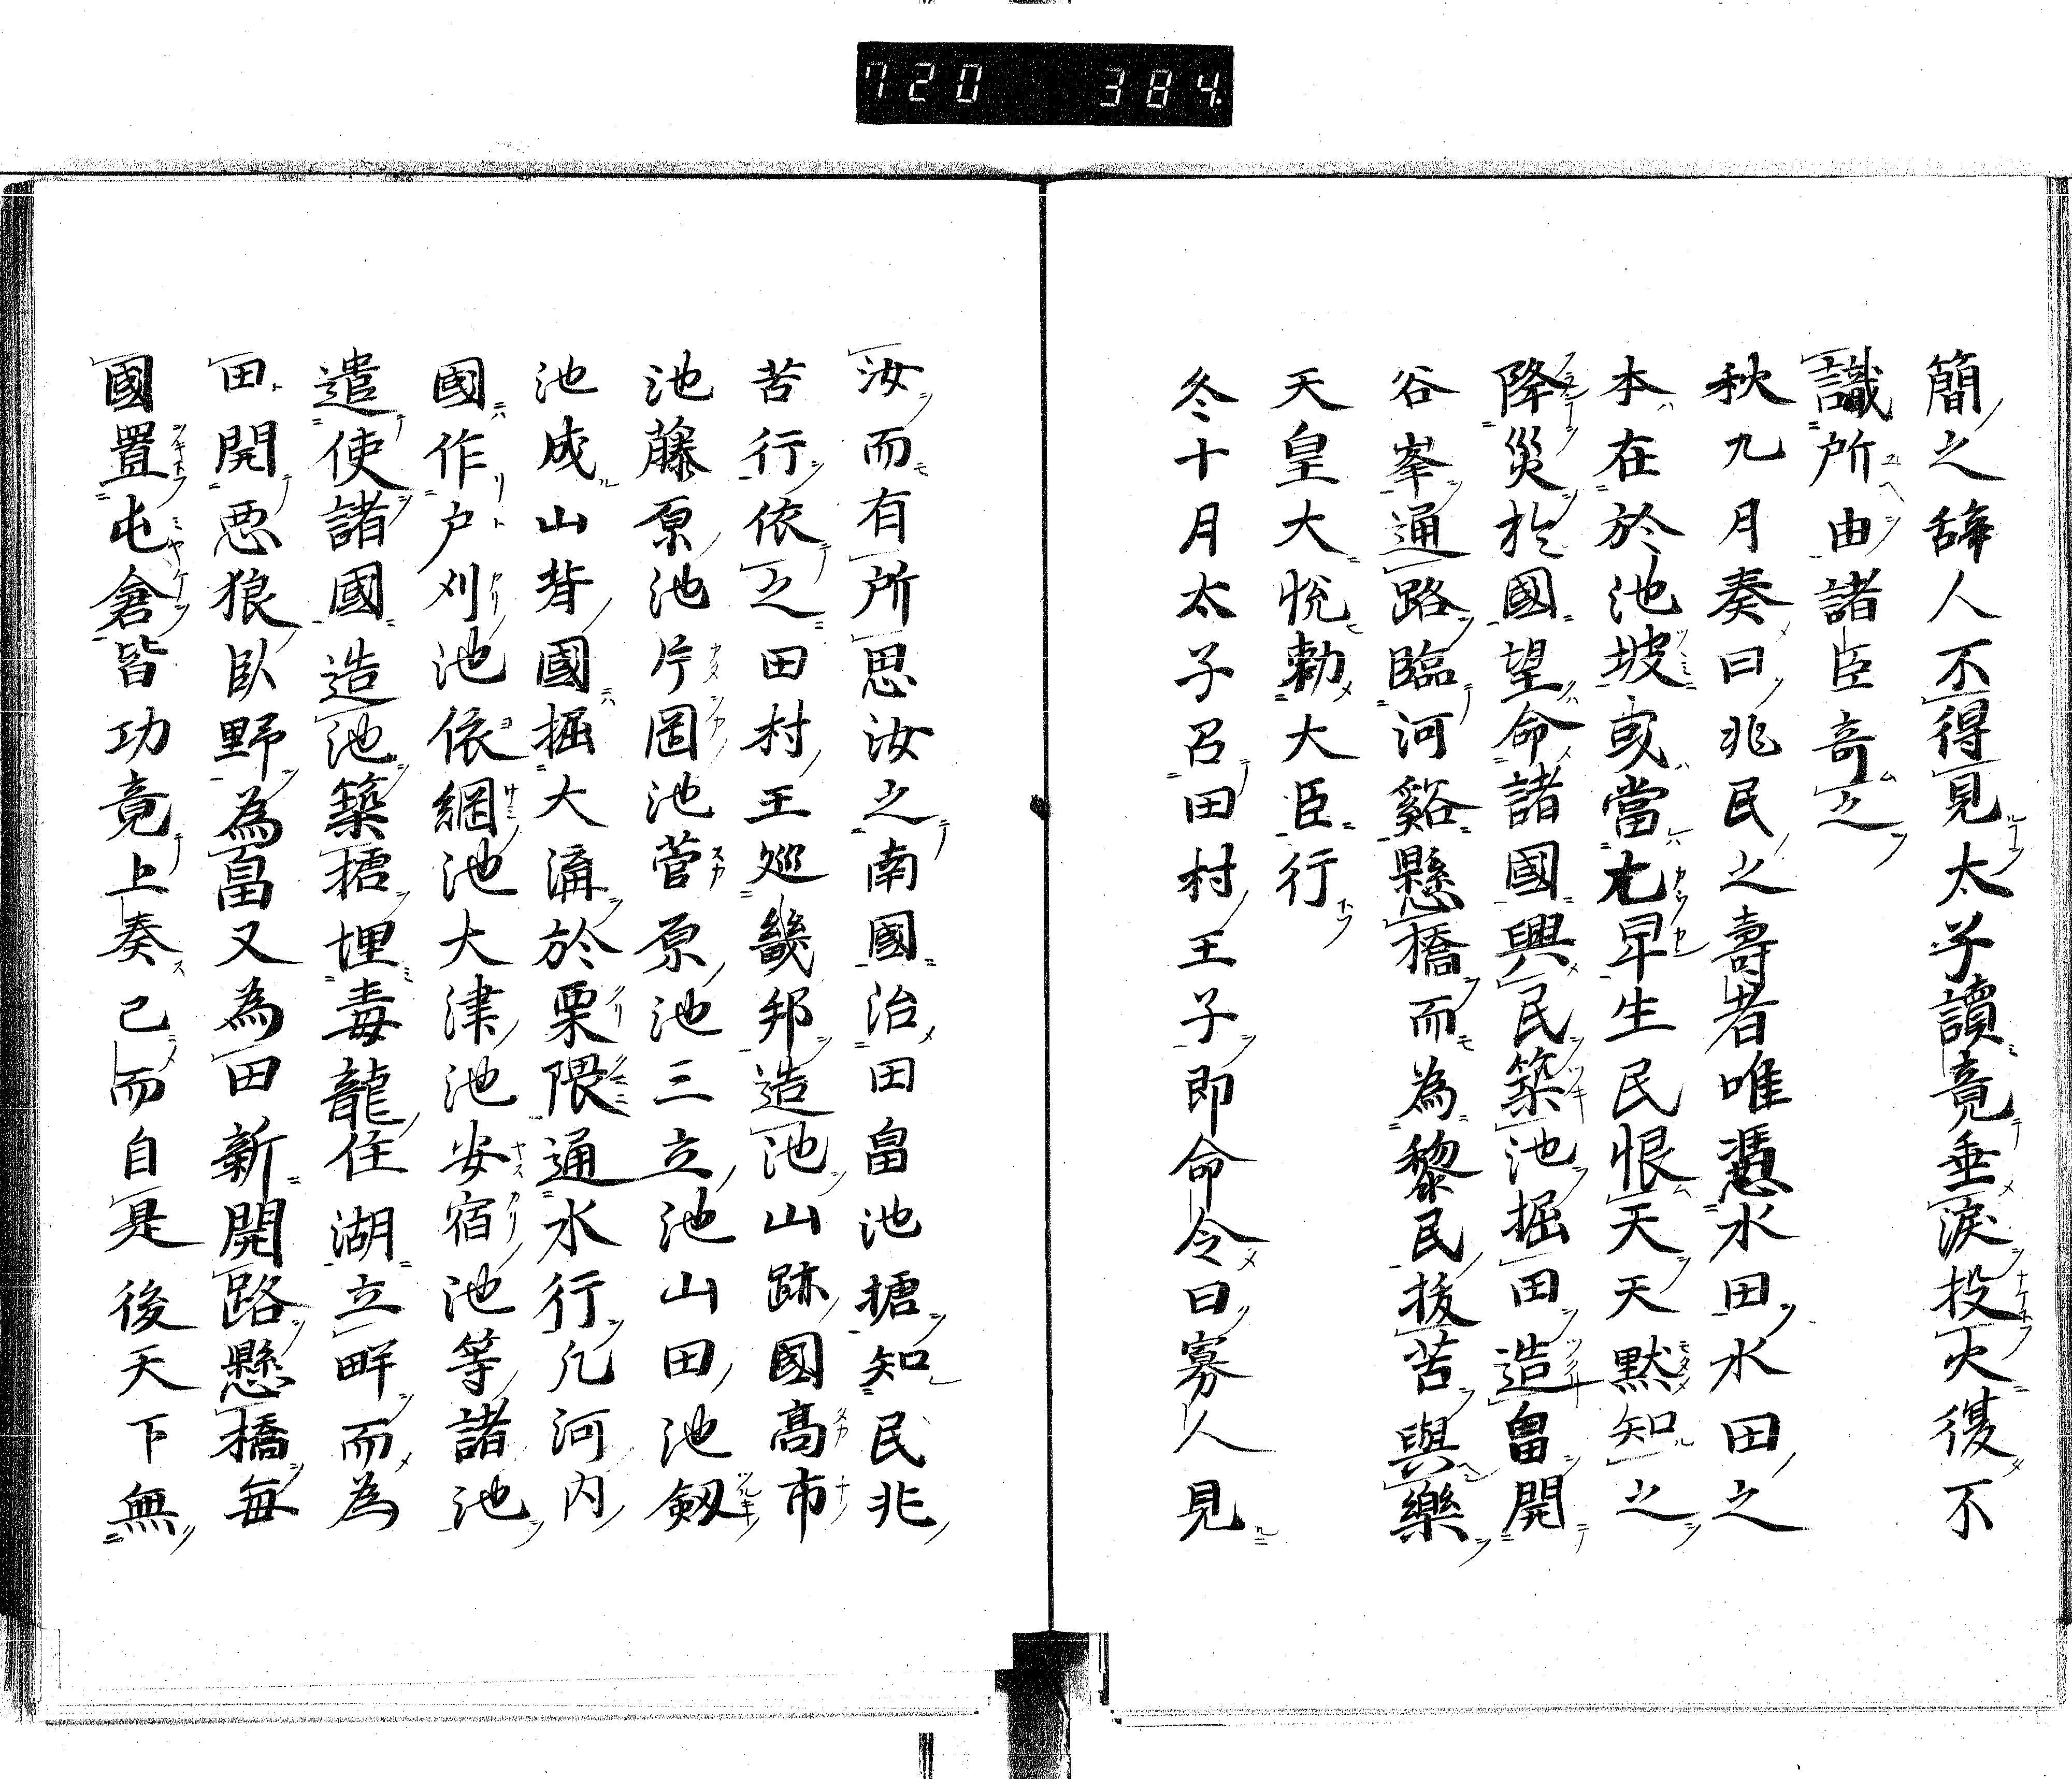 720 384
簡之辞人不得見太子讀竟垂淚投火復不
識所由諸臣奇之
秋九月奏曰兆民之壽者唯憑水田水田之
本在於池坡或當亢旱生民恨天天默知之
降災於國望命諸國興民築池掘田造畠開
谷峯通路臨河谿懸橋而為黎民拔苦與樂
天皇大悅勅大臣行
冬十月太子召田村王子即命令曰寡人見
汝而有所思汝之南國治田畠池搪知民兆
苦行依之田村王巡畿邦造池山跡國高市
池藤原池片岡池菅原池三立池山田池劔
池成山背國掘大溝於栗隈通水行凢河内
國作戸刈池依網池大津池安宿池等諸池
遣使諸國造池築搪埋毒龍住湖立畔而為
田開惡狼臥野為畠又為田新開路懸橋每
國置屯倉皆功竟上奏已而自是後天下無